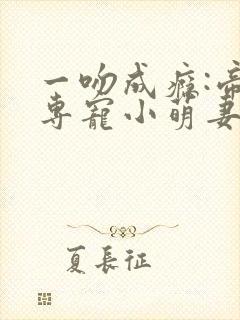 一吻成瘾:帝
专宠小萌妻
夏长征